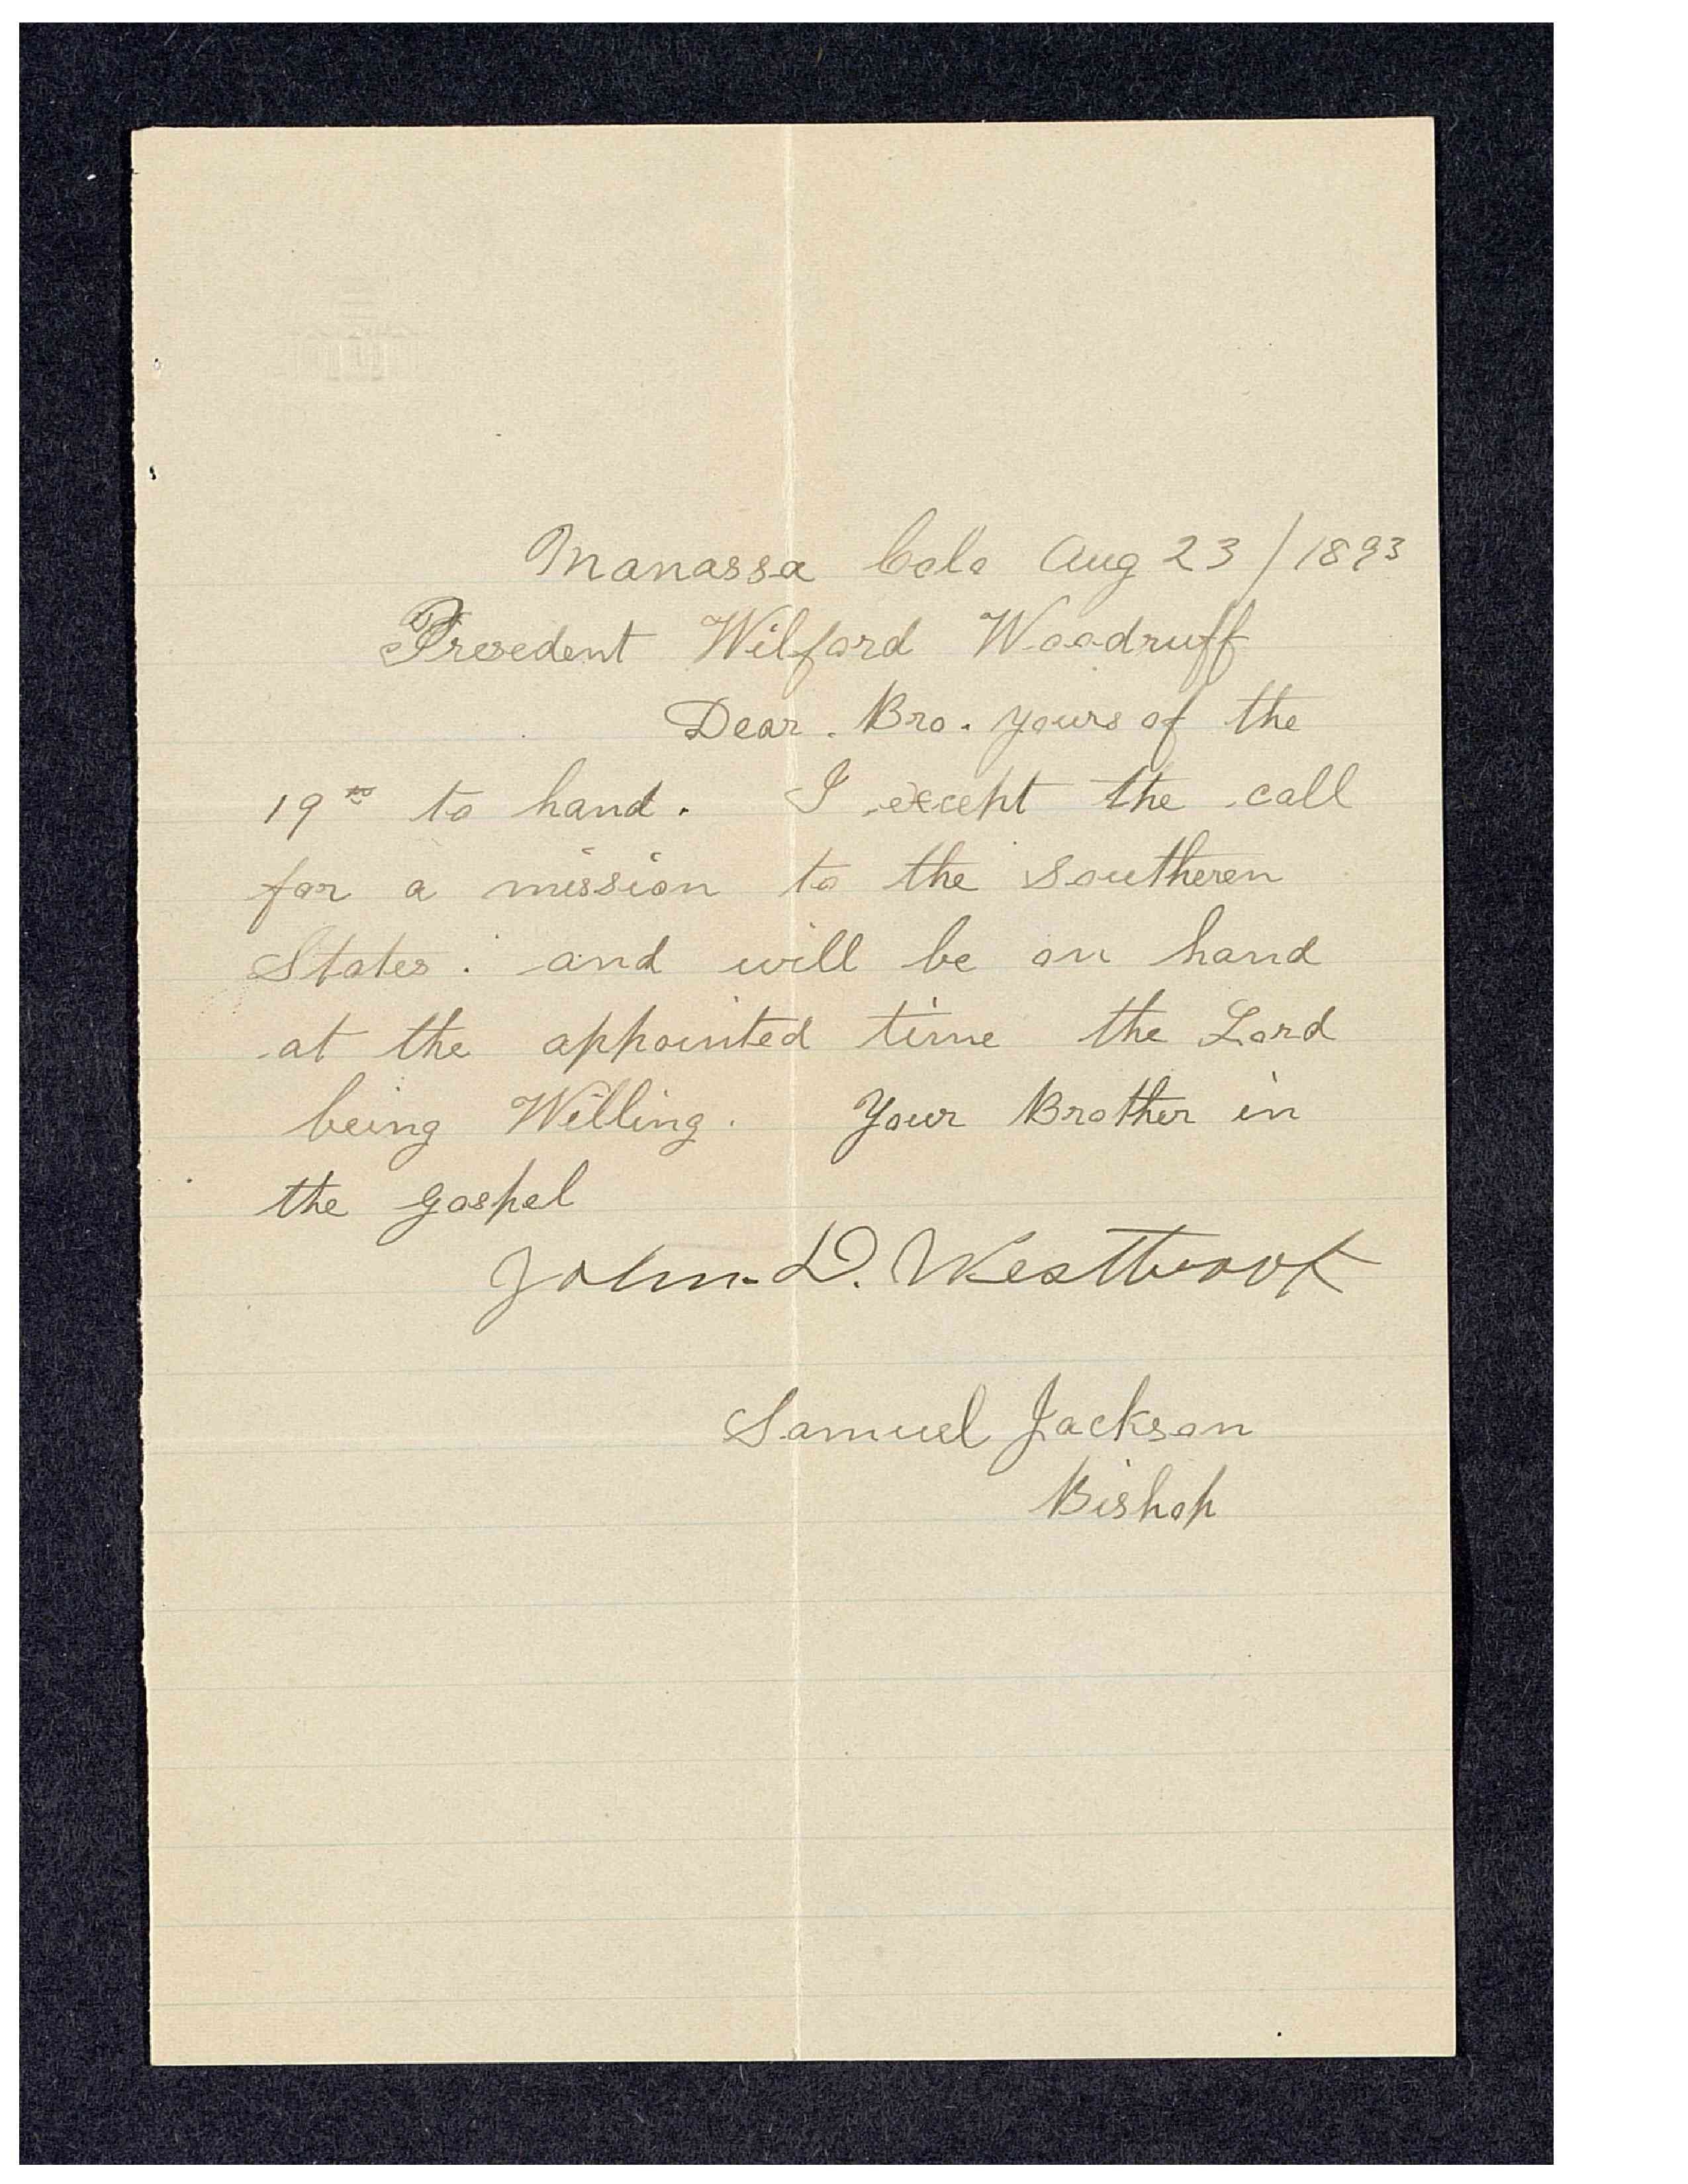 Manassa Colo Aug 23/1893
Presedent Wilford Woodruff
Dear. Bro. yours of the
19th to hand. I except the call
for a mission to the Southeren
States. and will be on hand
at the appointed time the Lord
being Willing. Your Brother in
the gospel
John D. Westbrook
Samuel Jackson
Bishop